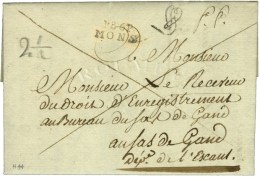 P.P.
MONS
Monsieur
Monsieur Le Receveur
du Droit d'Enregistrement
au Bureau du sas de Gand
au sas de Gand
Dép.t de l'Escaut